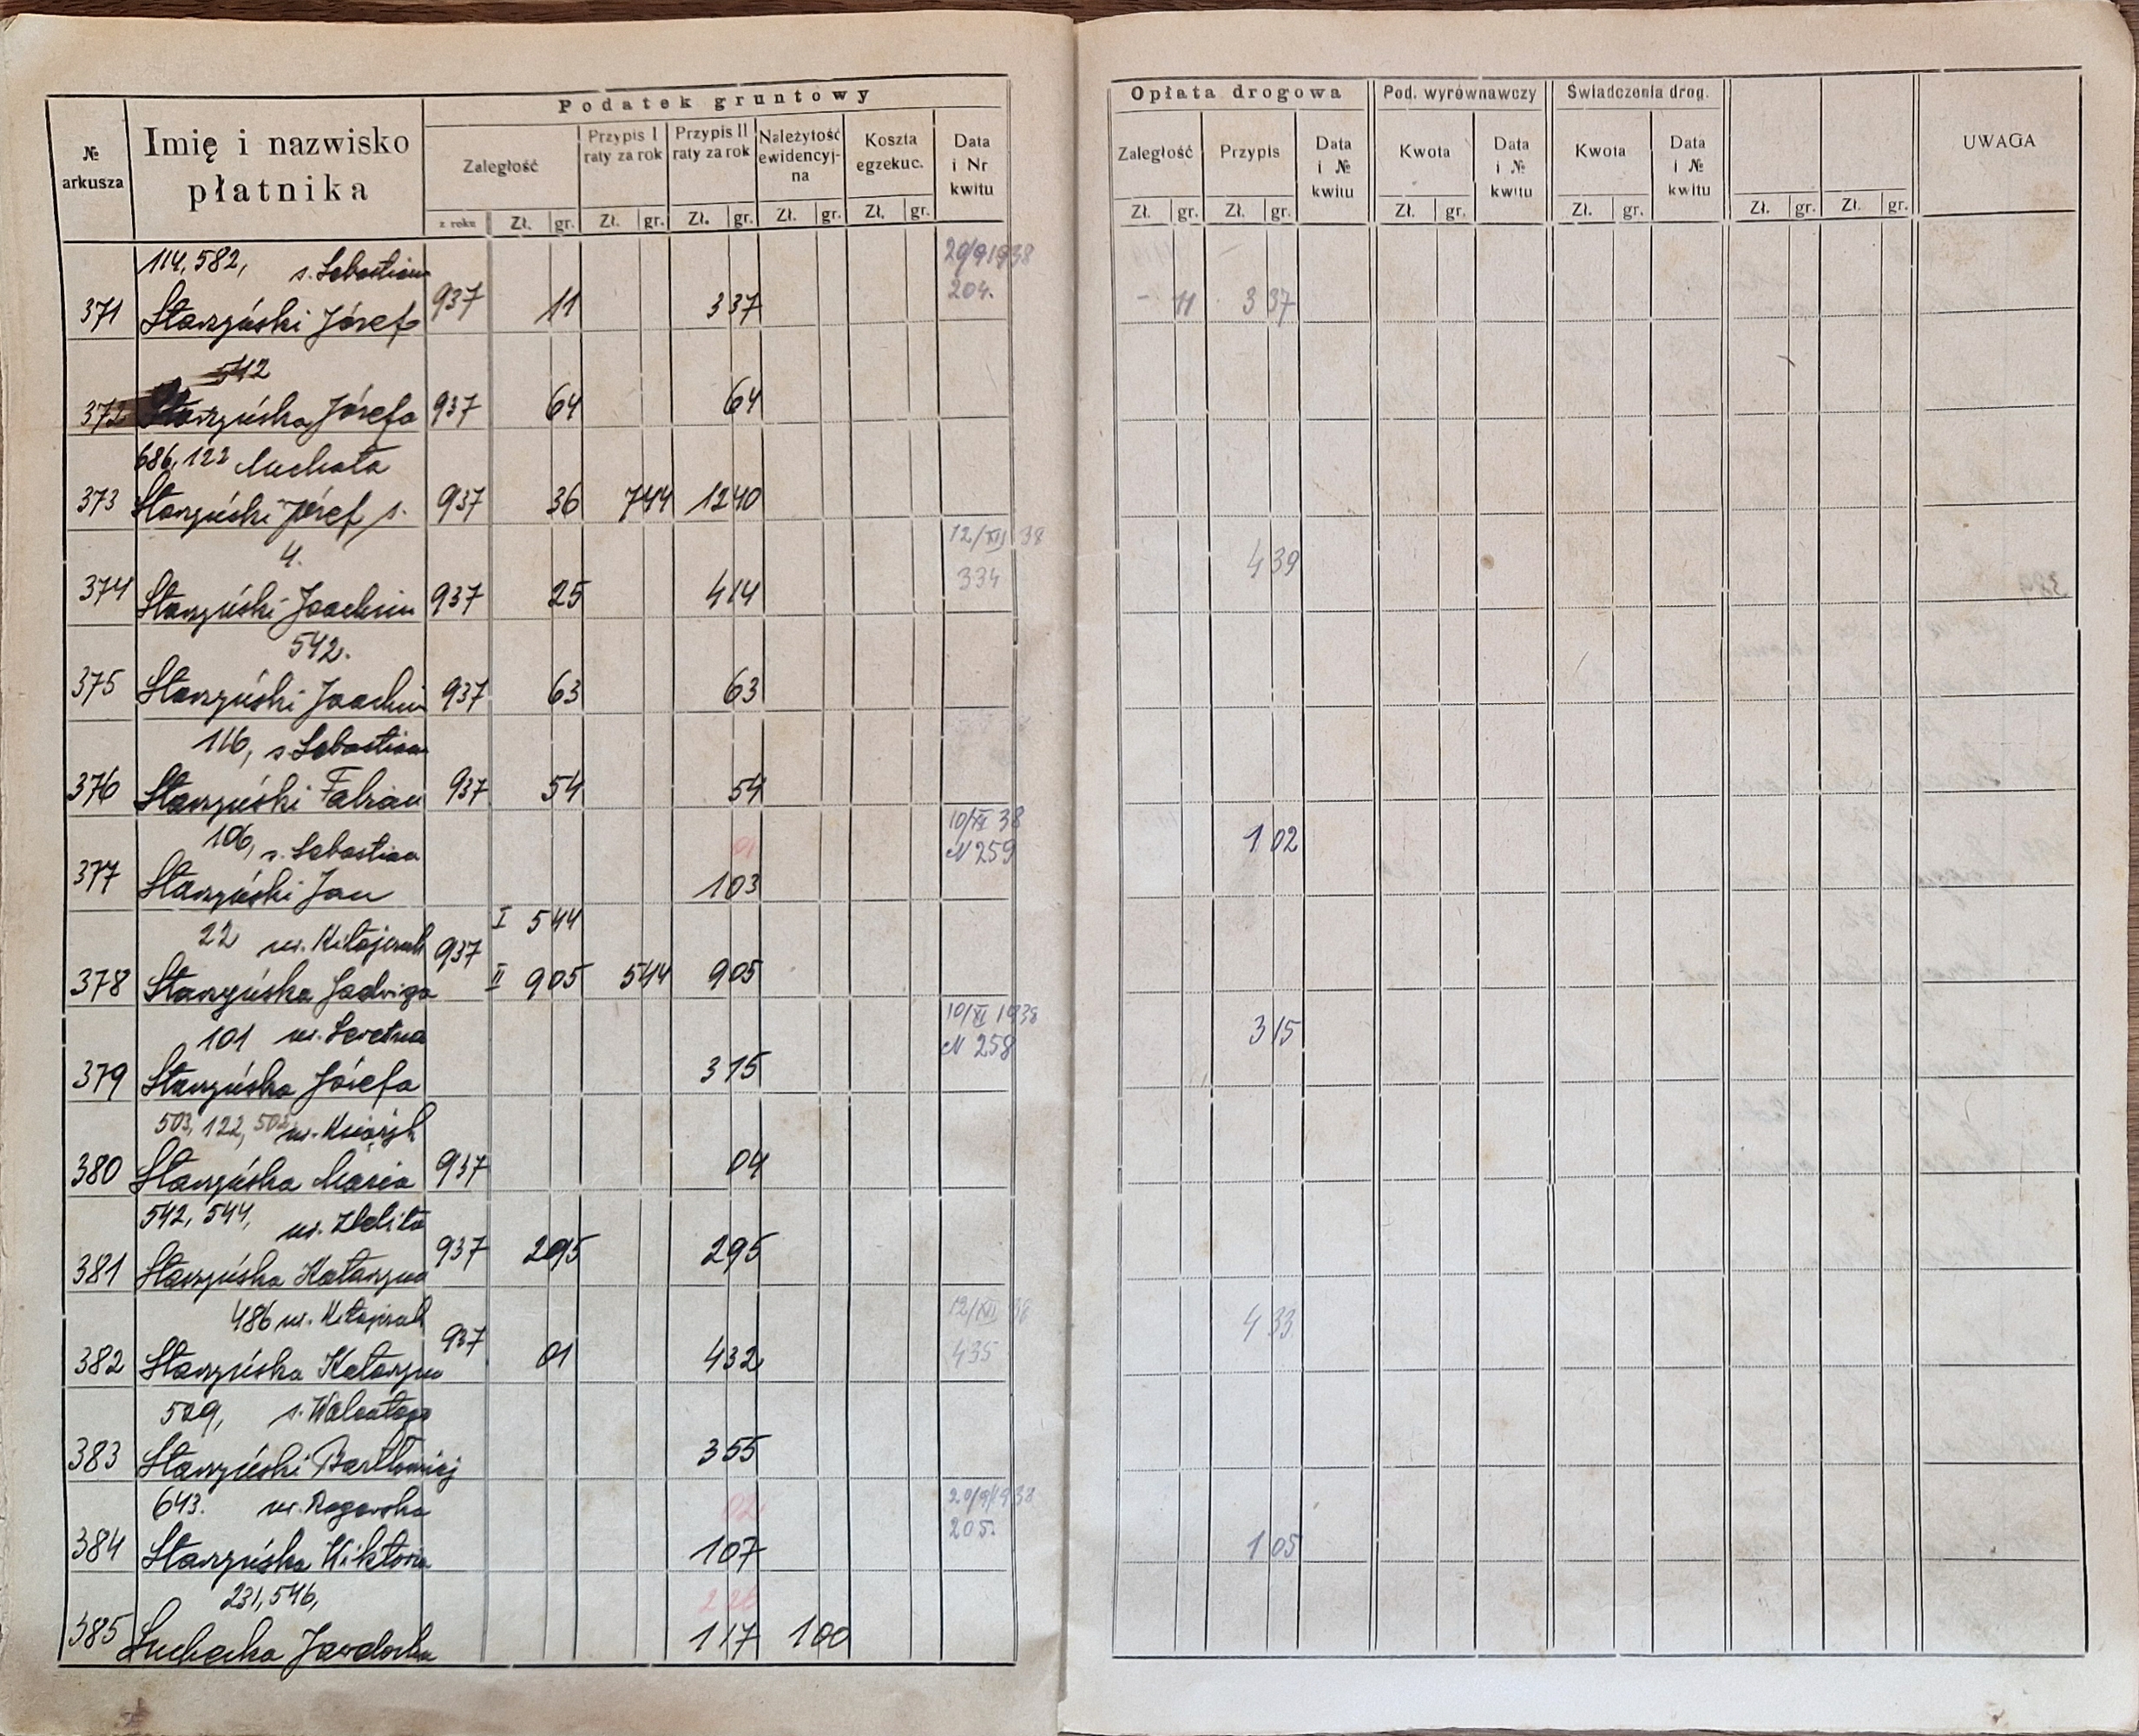 Podatek gruntowy
№ arkusza
Imię i nazwisko płatnika
Zaległość
Przypis I raty za rok
Przypis II raty za rok
Należytość ewidencyj-na
Koszta egzekuc.
Data i Nr kwitu
z roku Zł. gr. Zł. gr. Zł. gr. Zł. gr. Zł. gr.
Opłata drogowa
Pod. wyrównawczy
Świadczenia drog.
Zaległość
Przypis
Data i № kwitu
Kwota
Data i № kwitu
Kwota
Data i № kwitu
UWAGA
Zł. gr. Zł. gr. Zł. gr. Zł. gr. Zł. gr. Zł. gr.
114, 582, s. Sebastiana 20/9 1938
371 Starzyński Józef 937 11 3 37 204. - 11 3 37
542
372 Starzyńska Józefa 937 64 64
686, 122 Michała
373 Starzyński Józef s. 937 36 7 44 12 40
4. 12/XII 38 4 39
374 Starzyński Joachim 937 25 4 14 334
542.
375 Starzyński Joachim 937 63 63
116, s. Sebastiana
376 Starzyński Fabian 937 54 54
106, s. Sebastiana 01 10/XI 38 1 02
377 Starzyński Jan 1 03 N 259
22 937 I 5 44
378 Starzyńska Jadwiga II 9 05 5 44 9 05
101 10/XI 1938 3 15
379 Starzyńska Józefa 3 15 N 258
503, 122, 502
380 Starzyńska Maria 937 04
542, 544,
381 Starzyńska Katarzyna 937 2 95 2 95
486 12/XII 38 4 33
382 Starzyńska Katarzyna 937 01 4 32 435
529, s. Walentego
383 Starzyński Bartłomiej 3 55
643. ur. Rogowska 02 20/9 1938
384 Starzyńska Wiktoria 1 07 205. 1 05
231, 546, 2 26
385 1 17 1 00